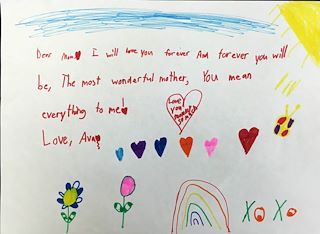 Dear mom I will love you forever And forever you will
be, The most wonderful mother, You mean
everything to me!
Love you
mommy
so much
Love, Ava
XOXO